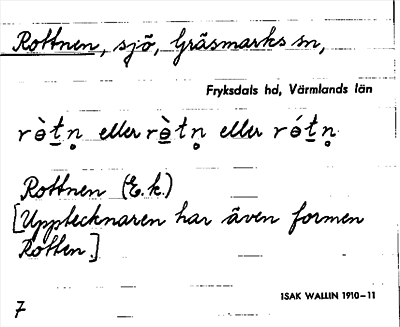 Rottnen, sjö, Gräsmarks sn,
Fryksdals hd, Värmlands län
rò̱tn̥ eller rò̱tn̥ eller rót̲n̥
Rottnen (E.k.)
[Upptecknaren har även formen
Rotten.]
ISAK WALLIN 1910-11
7